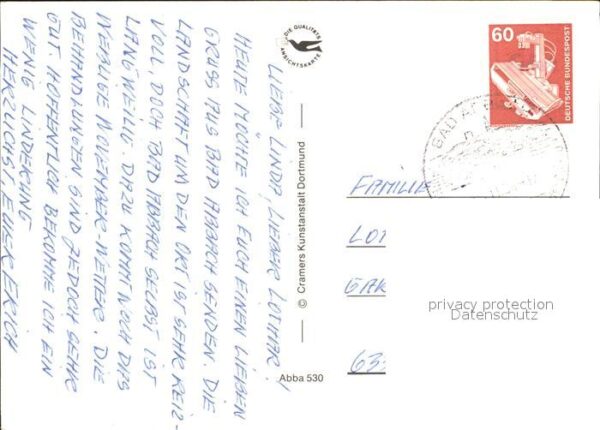 LIEBE LINDA, LIEBER LOTHAR!
HEUTE MÖCHTE ICH EUCH EINEN LIEBEN
GRUSS AUS BAD ABBACH SENDEN. DIE
LANDSCHAFT UM DEN ORT IST SEHR REIZ-
VOLL, DOCH BAD ABBACH SELBST IST
LANGWEILIG. DAZU KOMMT NOCH DAS
NEBLIGE NOVEMBER-WETTER. DIE
BEHANDLUNGEN SIND JEDOCH SEHR
GUT. HOFFENTLICH BEKOMME ICH EIN
WENIG LINDERUNG.
HERZLICHST EUER ERICH
DIE QUALITÄTS
ANSICHTSKARTE
© Cramers Kunstanstalt Dortmund
Abba 530
60
DEUTSCHE BUNDESPOST
BAD
FAMILIE
LOT
GAR
63
privacy protection
Datenschutz